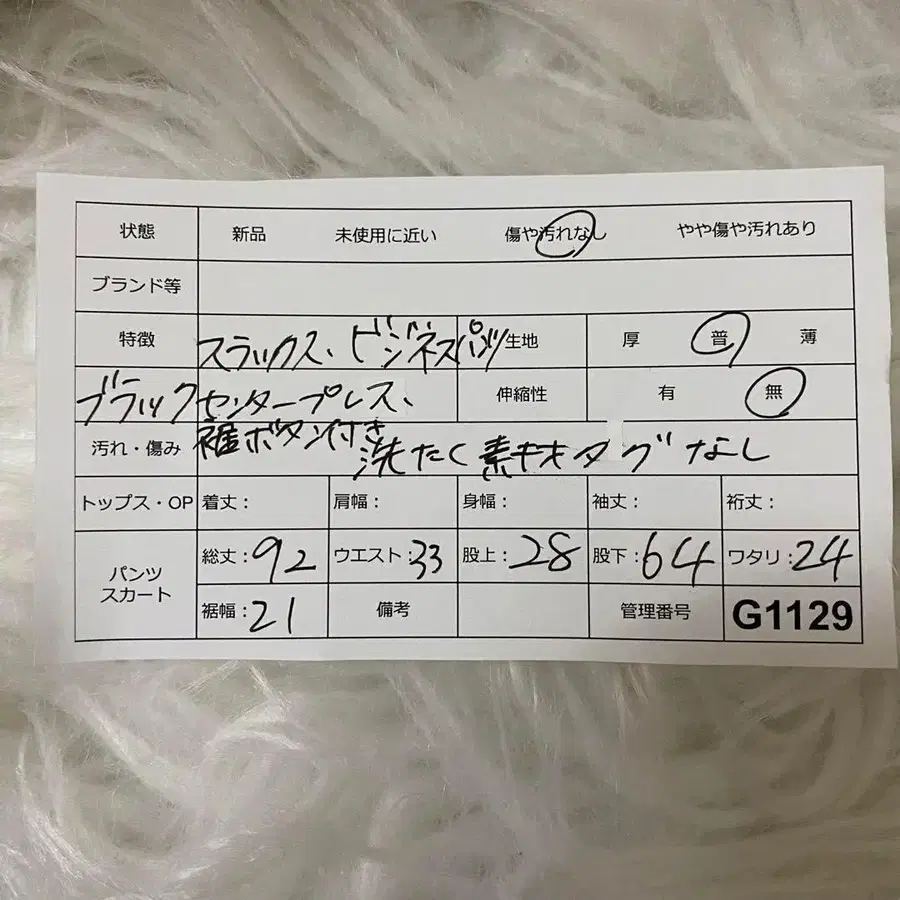 状態 新品 未使用に近い 傷や汚れなし やや傷や汚れあり
ブランド等
特徴 スラックス、ビジネスパンツ 生地 厚 普 薄
ブラック センタープレス、 伸縮性 有 無
汚れ・傷み 裾ボタン付き 洗たく 素材タグなし
トップス・OP 着丈： 肩幅： 身幅： 袖丈： 裄丈：
パンツ スカート 総丈：92 ウエスト：33 股上：28 股下：64 ワタリ：24
裾幅：21 備考 管理番号 G1129